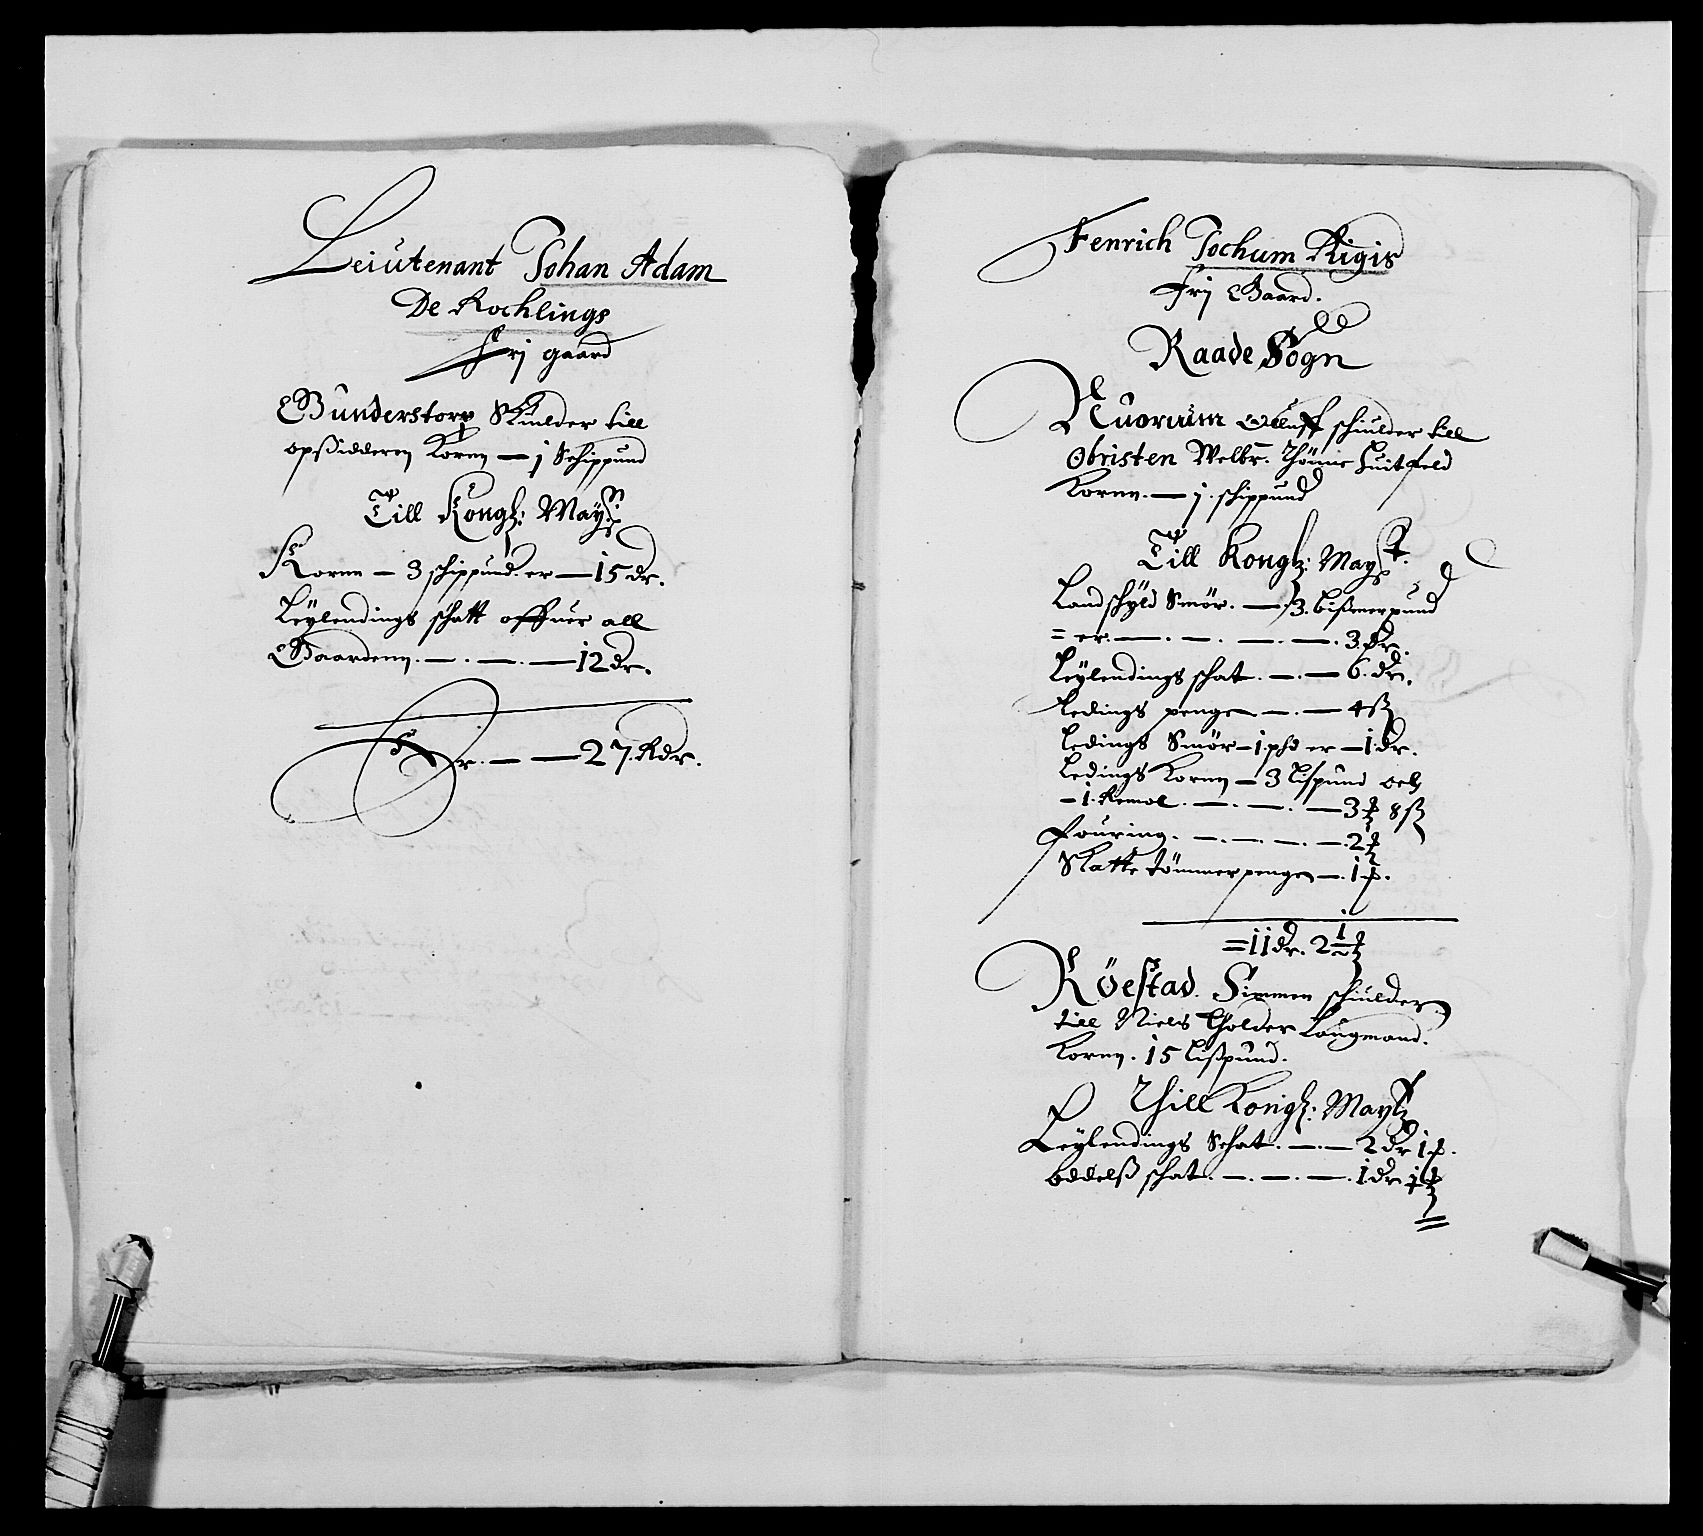 Leiutenant Johan Adam
De Rochlings
Frj gaard
Gunderstorp Skiulder till
opsidderen Korn — j Schippund
Till Kongl: May
Korn — 3 schippund er — 15 dr.
Leylendings schatt offuer all
Gaardenn. — . — . — 12 dr.
Er. — — 27. Rdr.
Fenrich Jochum Rigis
Frj Gaard.
Raade Sogn
Oluff schiulder till
Obristen Welbr. Huitfeld
Kornn. — j. schippund
Till Kongl: Mayt.
Landschyld Smør. — 3. bißmerpund
= er. — . — . — . — . 3 dr.
Leylendings schat. — . — 6. dr.
Ledings penge — . — 4 ß
Ledings Smør — 1. pd er — 1. dr.
Ledings Kornn — 3 Lispund och
— 1. Remol. — . — . — 3 8 ß
Fouring. — . — . — . 2
Skatte tømmer penge — . 1
= 11 dr. 2 1/2
Röestad. Simmen schiulder
till Niels Holder Laugmand.
Kornn. 15 Lißpund.
Thill Kongl: Mayt
Leylendings Schat. — . — 2 dr 1
oddelß schat. — . — . — . 1 dr